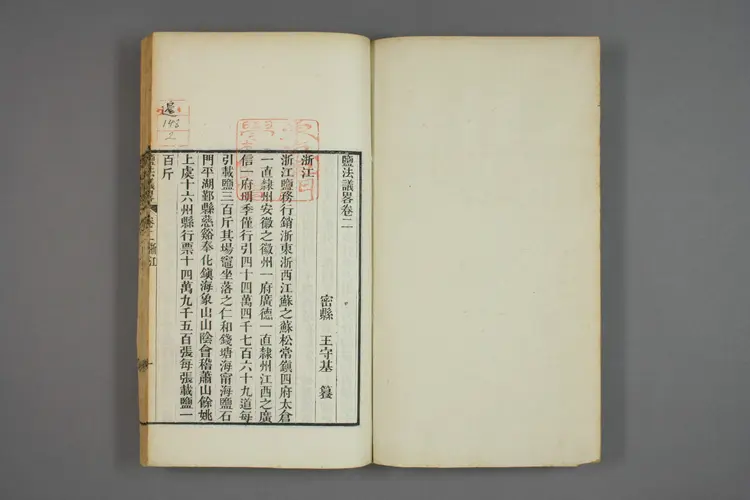 鹽法議畧卷二
密縣 王守基 纂
浙江
浙江鹽務行銷浙東浙西江蘇之蘇松常鎭四府太倉
一直隸州安徽之徽州一府廣德一直隸州江西之廣
信一府明季僅行引四十四萬四千七百六十九道每
引載鹽三百斤其場竈坐落之仁和錢塘海甯海鹽石
門平湖鄞縣慈谿奉化鎭海象山山陰會稽蕭山餘姚
上虞十六州縣行票十四萬九千五百張每張載鹽一
百斤
卷二 浙江
一
143
2